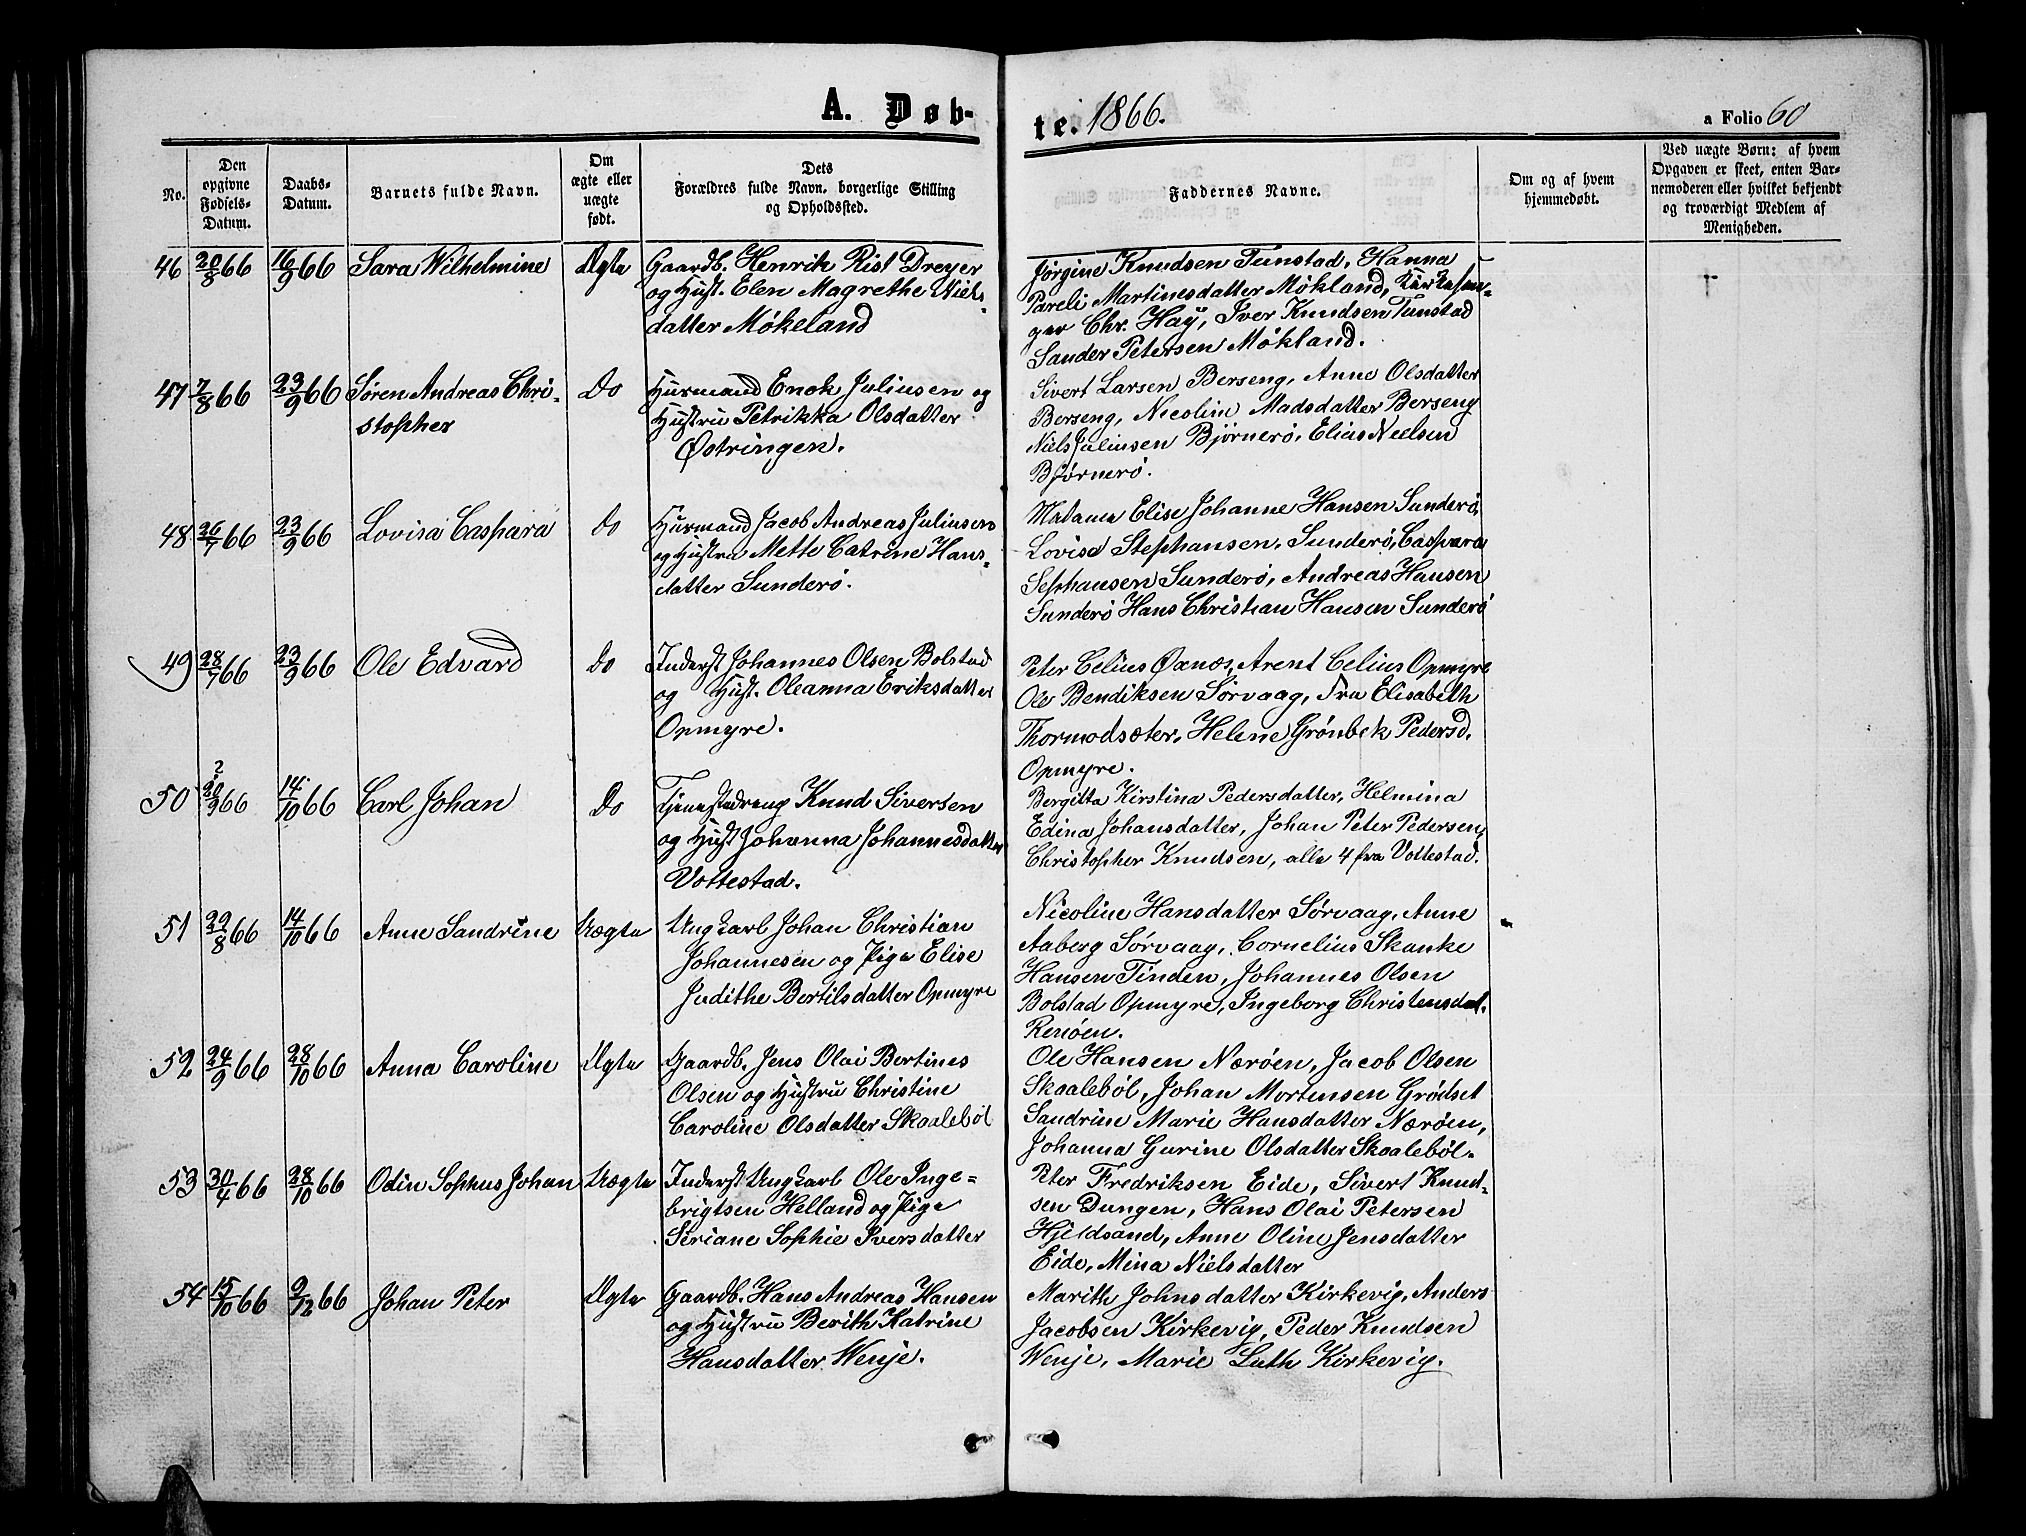 A. Døb-
te. 1866.
a Folio 60
No.
Den
opgivne
Fødsels-
Datum.
Daabs-
Datum.
Barnets fulde Navn.
Om
ægte eller
uægte
født.
Dets
Forældres fulde Navn, borgerlige Stilling
og Opholdssted.
Faddernes Navne.
Om og af hvem
hjemmedøbt.
Ved uægte Børn: af hvem
Opgaven er skeet, enten Bar-
nemoderen eller hvilket bekjendt
og troværdigt Medlem af
Menigheden.
46 20/8 66 16/9 66 Sara Wilhelmine Ægte
Gaardb. Henrik Rist Dreyer
og Hust. Elen Magrethe Niels
datter Møkeland
Jørgine Knudsen Tunstad, Hanna
Pareli Martinesdatter Møkland,
ger Chr. Hay, Iver Knudsen Tunstad
Sander Petersen Møkland.
47 7/8 66 23/9 66 Søren Andreas Chri-
stopher
Do
Huusmand Enok Juliusen og
Hustru Petrikka Olsdatter
Østringen.
Sivert Larsen Berseng, Anne Olsdatter
Berseng, Nicolin Madsdatter Berseng
Niels Juliusen Bjørnerö, Elias Nielsen
Bjørnerö.
48 26/7 66 23/9 66 Lovisa Caspara Do
Huusmand Jacob Andreas Juliusen
og Hustru Mette Catrine Hans-
datter Sunderö.
Madama Elise Johanne Hansen Sunderö,
Lovise Stephansen, Sunderö, Caspara
Sephansen Sunderö, Andreas Hansen
Sunderö Hans Christian Hansen Sunderö
49 28/7 66 23/9 66 Ole Edvard Do
Inderst Johannes Olsen Bolstad
og Hust. Oleanna Eriksdatter
Opmyre.
Peter Celius Øxnæs, Arent Celius Opmyre
Ole Bendiksen Sørvaag, Fru Elisabeth
Thormodsæter, Helene Grönbek Pedersd.
Opmyre.
50 2 20/9 66 14/10 66 Carl Johan Do
Tjenestedreng Knud Siversen
og Hust Johanna Johannesdatter
Vottestad.
Bergitta Kirstina Pedersdatter, Helmina
Edina Johansdatter, Johan Peter Pedersen,
Christopher Knudsen, alle 4 fra Vottestad.
51 22/8 66 14/10 66 Anne Sandrine Uægte
Ungkarl Johan Christian
Johannesen og Pige Elise
Judithe Bertilsdatter Opmyre
Nicoline Hansdatter Sörvaag, Anne
Aaberg Sörvaag, Cornelius Skanke
Hansen Tinden, Johannes Olsen
Bolstad Opmyre, Ingeborg Christensdat.
Renöen.
52 24/9 66 28/10 66 Anna Caroline Ægte
Gaardb. Jens Olai Bertines
Olsen og Hustru Christine
Caroline Olsdatter Skaalebøl
Ole Hansen Næröen, Jacob Olsen
Skaaleböl, Johan Mortensen Grötset
Sandrine Marie Hansdatter Næröen,
Johanna Gurine Olsdatter Skaaleböl.
53 30/4 66 28/10 66 Odin Sophus Johan Uægte
Inderst Ungkarl Ole Inge-
brigtsen Helland og Pige
Seriane Sophie Iversdatter
Peter Fredriksen Eide, Sivert Knud-
sen Dungen, Hans Olai Petersen
Hjeldsand, Anne Oline Jensdatter
Eide, Mina Nielsdatter
54 15/10 66 9/12 66 Johan Peter Ægte
Gaardb. Hans Andreas Hansen
og Hustru Berith Katrine
Hansdatter Wenje.
Marith Johnsdatter Kirkevig, Anders
Jacobsen Kirkevig, Peder Knudsen
Wenje, Marie Luth Kirkevig.